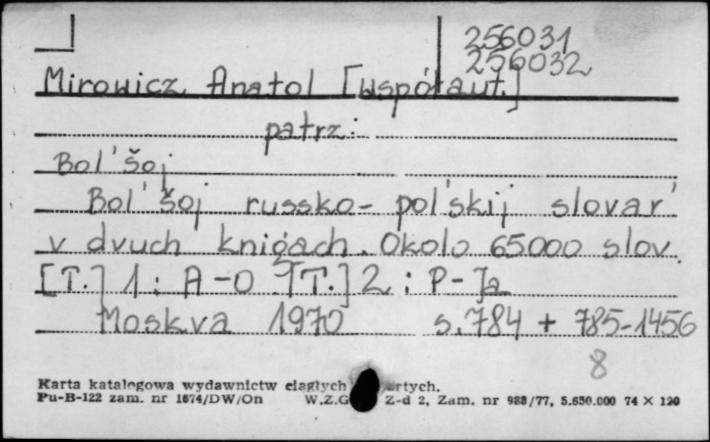 256031
256032
Mirowicz Anatol [współaut.]
patrz:
Bol'šoj
Bol'šoj russko-pol'skij slovar'
v dvuch knigach. Okolo 65000 slov.
[T.] 1: A-O [T.] 2: P-Ja
Moskva 1970 s. 784 + 785-1456
8
Karta katalogowa wydawnictw ciągłych
Pu-B-122 zam. nr 1674/DW/On W.Z.G Z-d 2, Zam. nr 988/77, 5.650.000 74 × 120